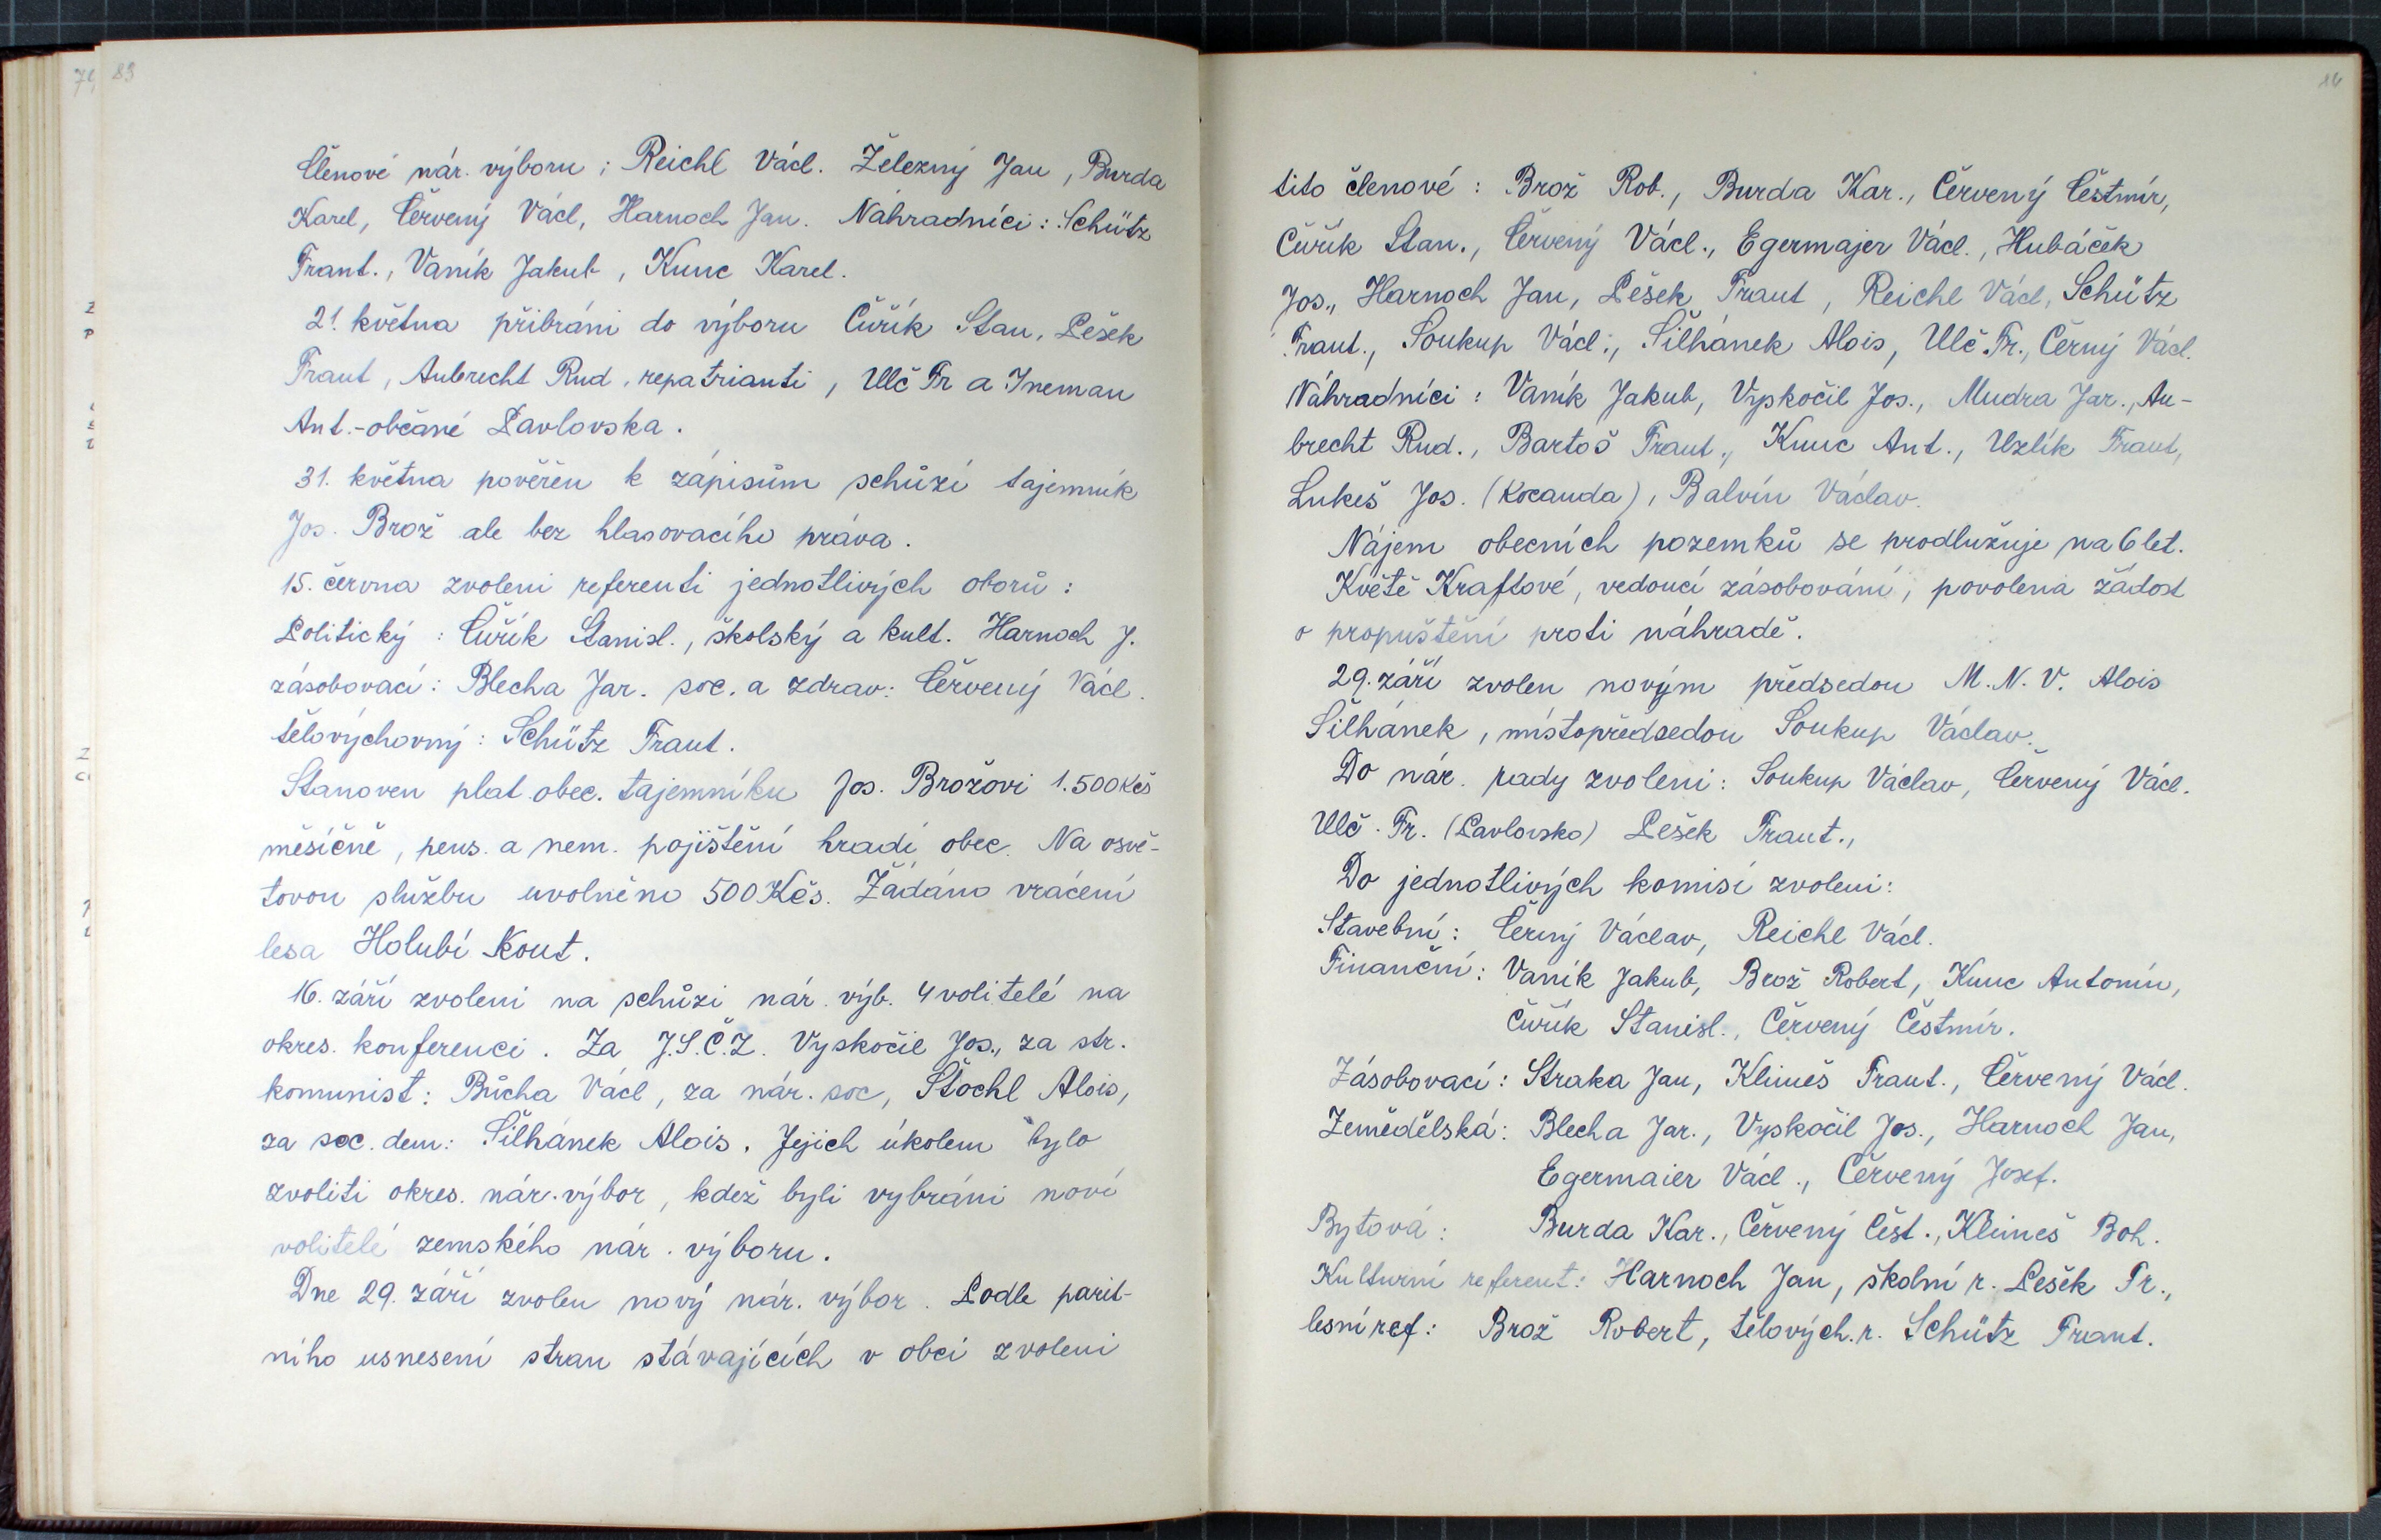 83
Členové nár. výboru: Reichl Václ. Železný Jan, Burda
Karel, Červený Václ, Harnoch Jan. Náhradníci: Schütz
Frant., Vaník Jakub, Kunc Karel.
21. května přibráni do výboru Čuřík Stan, Pešek
Frant, Aubrecht Rud, repatrianti, Ulč Fr a Ineman
Ant.-občané Pavlovska.
31. května pověřen k zápisům schůzí tajemník
Jos. Brož ale bez hlasovacího práva.
15. června zvoleni referenti jednotlivých oborů:
Politický: Čuřík Stanisl., školský a kult. Harnoch J.
zásobovací: Blecha Jar. soc. a zdrav: Červený Václ.
tělovýchovný: Schütz Frant.
Stanoven plat obec. tajemníku Jos. Brožovi 1.500 Kčs
měsíčně, pens. a nem. pojištění hradí obec. Na osvě-
tovou službu uvolněno 500 Kčs. Žádáno vrácení
lesa Holubí Kout.
16. září zvoleni na schůzi nár. výb. 4 volitelé na
okres. konferenci. Za J.S.Č.Z. Vyskočil Jos., za str.
komunist: Bůcha Václ, za nár. soc, Štochl Alois,
za soc. dem: Šilhánek Alois. Jejich úkolem bylo
zvoliti okres. nár. výbor, kdež byli vybráni noví
volitelé zemského nár. výboru.
Dne 29. září zvolen nový nár. výbor. Podle parit-
ního usnesení stran stávajících v obci zvoleni
tito členové: Brož Rob., Burda Kar., Červený Čestmír,
Čuřík Stan., Červený Václ., Egermajer Václ., Hubáček
Jos., Harnoch Jan, Pešek Frant, Reichl Václ, Schütz
Frant., Soukup Václ., Šilhánek Alois, Ulč Fr., Černý Václ.
Náhradníci: Vaník Jakub, Vyskočil Jos., Mudra Jar., Au-
brecht Rud., Bartoš Frant., Kunc Ant., Uzlík Frant,
Lukeš Jos. (Kocanda), Balvín Václav.
Nájem obecních pozemků se prodlužuje na 6 let.
Květě Kraftové, vedoucí zásobování, povolena žádost
o propuštění proti náhradě.
29. září zvolen novým předsedou M.N.V. Alois
Šilhánek, místopředsedou Soukup Václav.
Do nár. rady zvoleni: Soukup Václav, Červený Václ.
Ulč. Fr. (Pavlovsko) Pešek Frant.,
Do jednotlivých komisí zvoleni:
Stavební: Černý Václav, Reichl Václ.
Finanční: Vaník Jakub, Brož Robert, Kunc Antonín,
Čuřík Stanisl., Červený Čestmír.
Zásobovací: Straka Jan, Klimeš Frant., Červený Václ.
Zemědělská: Blecha Jar., Vyskočil Jos., Harnoch Jan,
Egermaier Václ., Červený Josef.
Bytová: Burda Kar., Červený Čest., Klimeš Boh.
Kulturní referent: Harnoch Jan, školní r. Pešek Fr.,
lesní ref: Brož Robert, tělových. r. Schütz Frant.